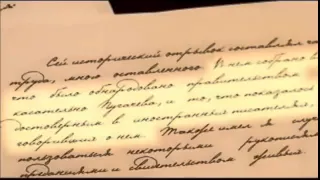 Сей исторический отрывок составлял ча
труда, мною оставленного. В нем собрано в
что было обнародовано правительством
касательно Пугачева, и то, что показалось
достоверным в иностранных писателях,
говоривших о нем. Также имел я слу
пользоваться некоторыми рукописям
преданиями и свидетельством живых.